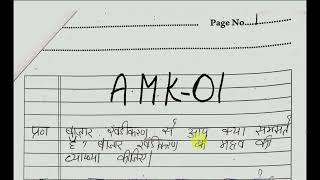 Page No. 1
A.M.K-01
प्रश्न बाजार खंडीकरण से आप क्या समझते
है? बाजार खंडीकरण के महत्व की
व्याख्या कीजिए।